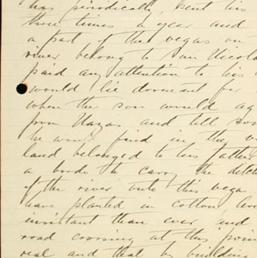 has periodically sent his
three times a year and
a part of the vegas on
river belong to San Nicola
paid any attention to his
would lie dormant for
when the son would ag
from Mazas and tell so
he was fined in the
land belonged to his father
a bordo to carry the
of the river onto this vega
have planted in cotton and
insistant than ever and
road crossing at this poin
real and that by building